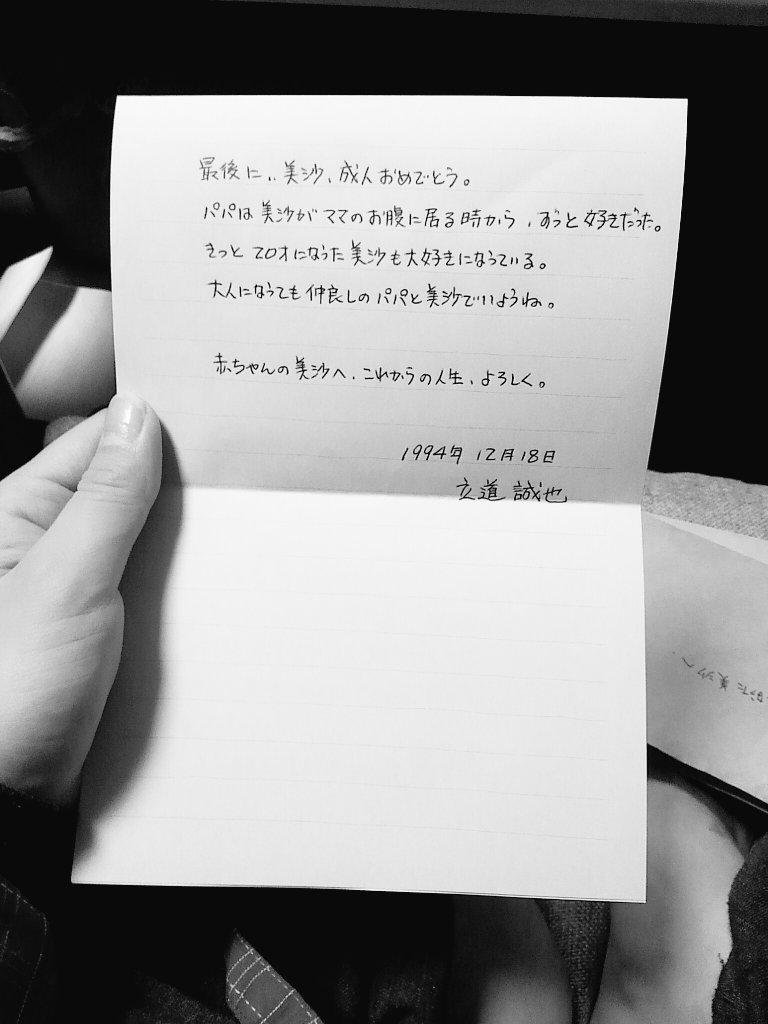 最後に、、美沙、成人おめでとう。
パパは美沙がママのお腹に居る時から、ずっと好きだった。
きっと20才になった美沙も大好きになっている。
大人になっても仲良しのパパと美沙でいようね。
赤ちゃんの美沙へ、これからの人生、よろしく。
1994年 12月18日
立道 誠也
なった美沙へ